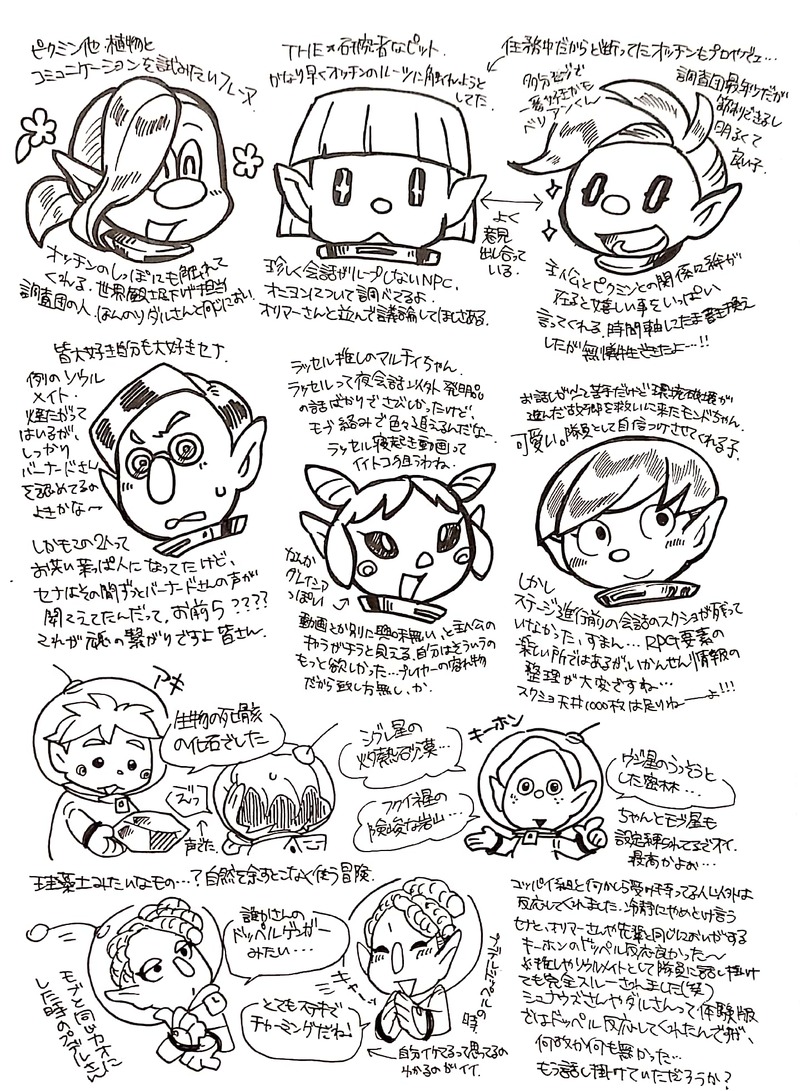 ピクミン他、植物と
コミュニケーションを試みたいフレーヌ
オッチンのしっぽにも触れて
くれる。世界観土台下げ担当
調査団の人。ほんのりダルさんと同じにおい
THE★研究者なピット。
かなり早くオッチンのルーツに角虫れようと
してた。
珍しく会話がループしないNPC。
オニヨンについて調べてるよ
オリマーさんと並んで議論してほしさある。
よく
意見
出し合って
いる。
任務中だからと断ってたオッチンもプロやでェ…
多分モブで
ベリアンくん
調査団最年少だが
明るくて
良い子。
主人公とピクミンとの関係に絆が
在ると嬉しい事をいっぱい
言ってくれる。時間軸にたまき込み換え
したが無犠牲できたよ…!!
皆大好き自分も大好きセナ。
例のソウル
メイト。
煙たがって
はいるが、
しっかり
バーナードさん
を認めてるの
よきかな〜
しかもこの2人って
お笑い葉っぱ人になってたけど、
セナはその間ずっとバーナードさんの声が
聞こえてたんだって。お前ら????
これが魂の繋がりですよ皆さん。
ラッセル推しのマルティちゃん。
ラッセルって夜会話以外発明品
の話ばかりでさびしかったけど、
モブ絡みで色々追えるんだな〜
ラッセル寝起き動画って
イイトコ狙うわね。
なんか
グレイシア
っぽい
動画とか別に興味無い、と主人公の
キャラがチラと見える。自分はそういうの
もっと欲しかった…プレイヤーの容れ物
だから致し方無し、か。
お話しが少々苦手だけど環境破壊が
進んだ故郷を救いに来たモンドちゃん。
可愛い。隊員として自信つけさせてくれる子。
しかし
ステージ進行前の会話のスクショが残って
いなかった、すまん…RPG要素の
楽しい所ではあるがいかんせん情報の
整理が大変ですね…
スクショ天井1000枚は足りねーーよ!!!
アキ
生物の死骸
の化石でした
ズッ
声が…
ジブレ星の
灼熱砂漠…
フクイネ星の
険峻な岩山…
キーホン
ウジ星のうっそうと
した密林…
ちゃんとモブ星も
設定練られてるでオイ。
最高かよぉ…
珪藻土みたいなもの…？自然を余すとこなく使う冒険。
誰かさんの
ドッペルゲンガー
みたい…
とてもステキで
チャーミングだわ！
キャーッ
自分イケてるって思ってるの
わかるのがイイ。
コッパイ組と何かしら受け持ってる人以外は
反応してくれました。冷静にやめとけ言う
セナと、オリマーさんや先輩と同じにおいがする
キーホンのドッペル反応良かった〜
推しやソウルメイトとして隊員に話し掛け
ても完全スルーされました(笑)
シュナウズさんやダルさんって体験版
ではドッペル反応してくれたんですが、
何故か何も無かった…
もう話し掛けていただろうか？